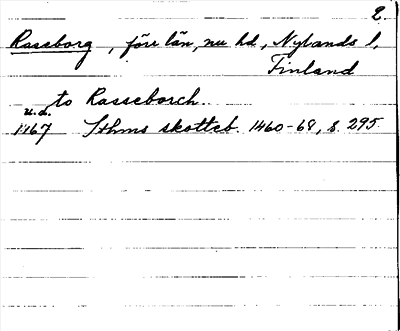 2.
Raseborg, förr län, nu hd, Nylands l,
Finland
to Rasseborch.
u.d.
1467 Sthms skotteb. 1460-68, s. 295